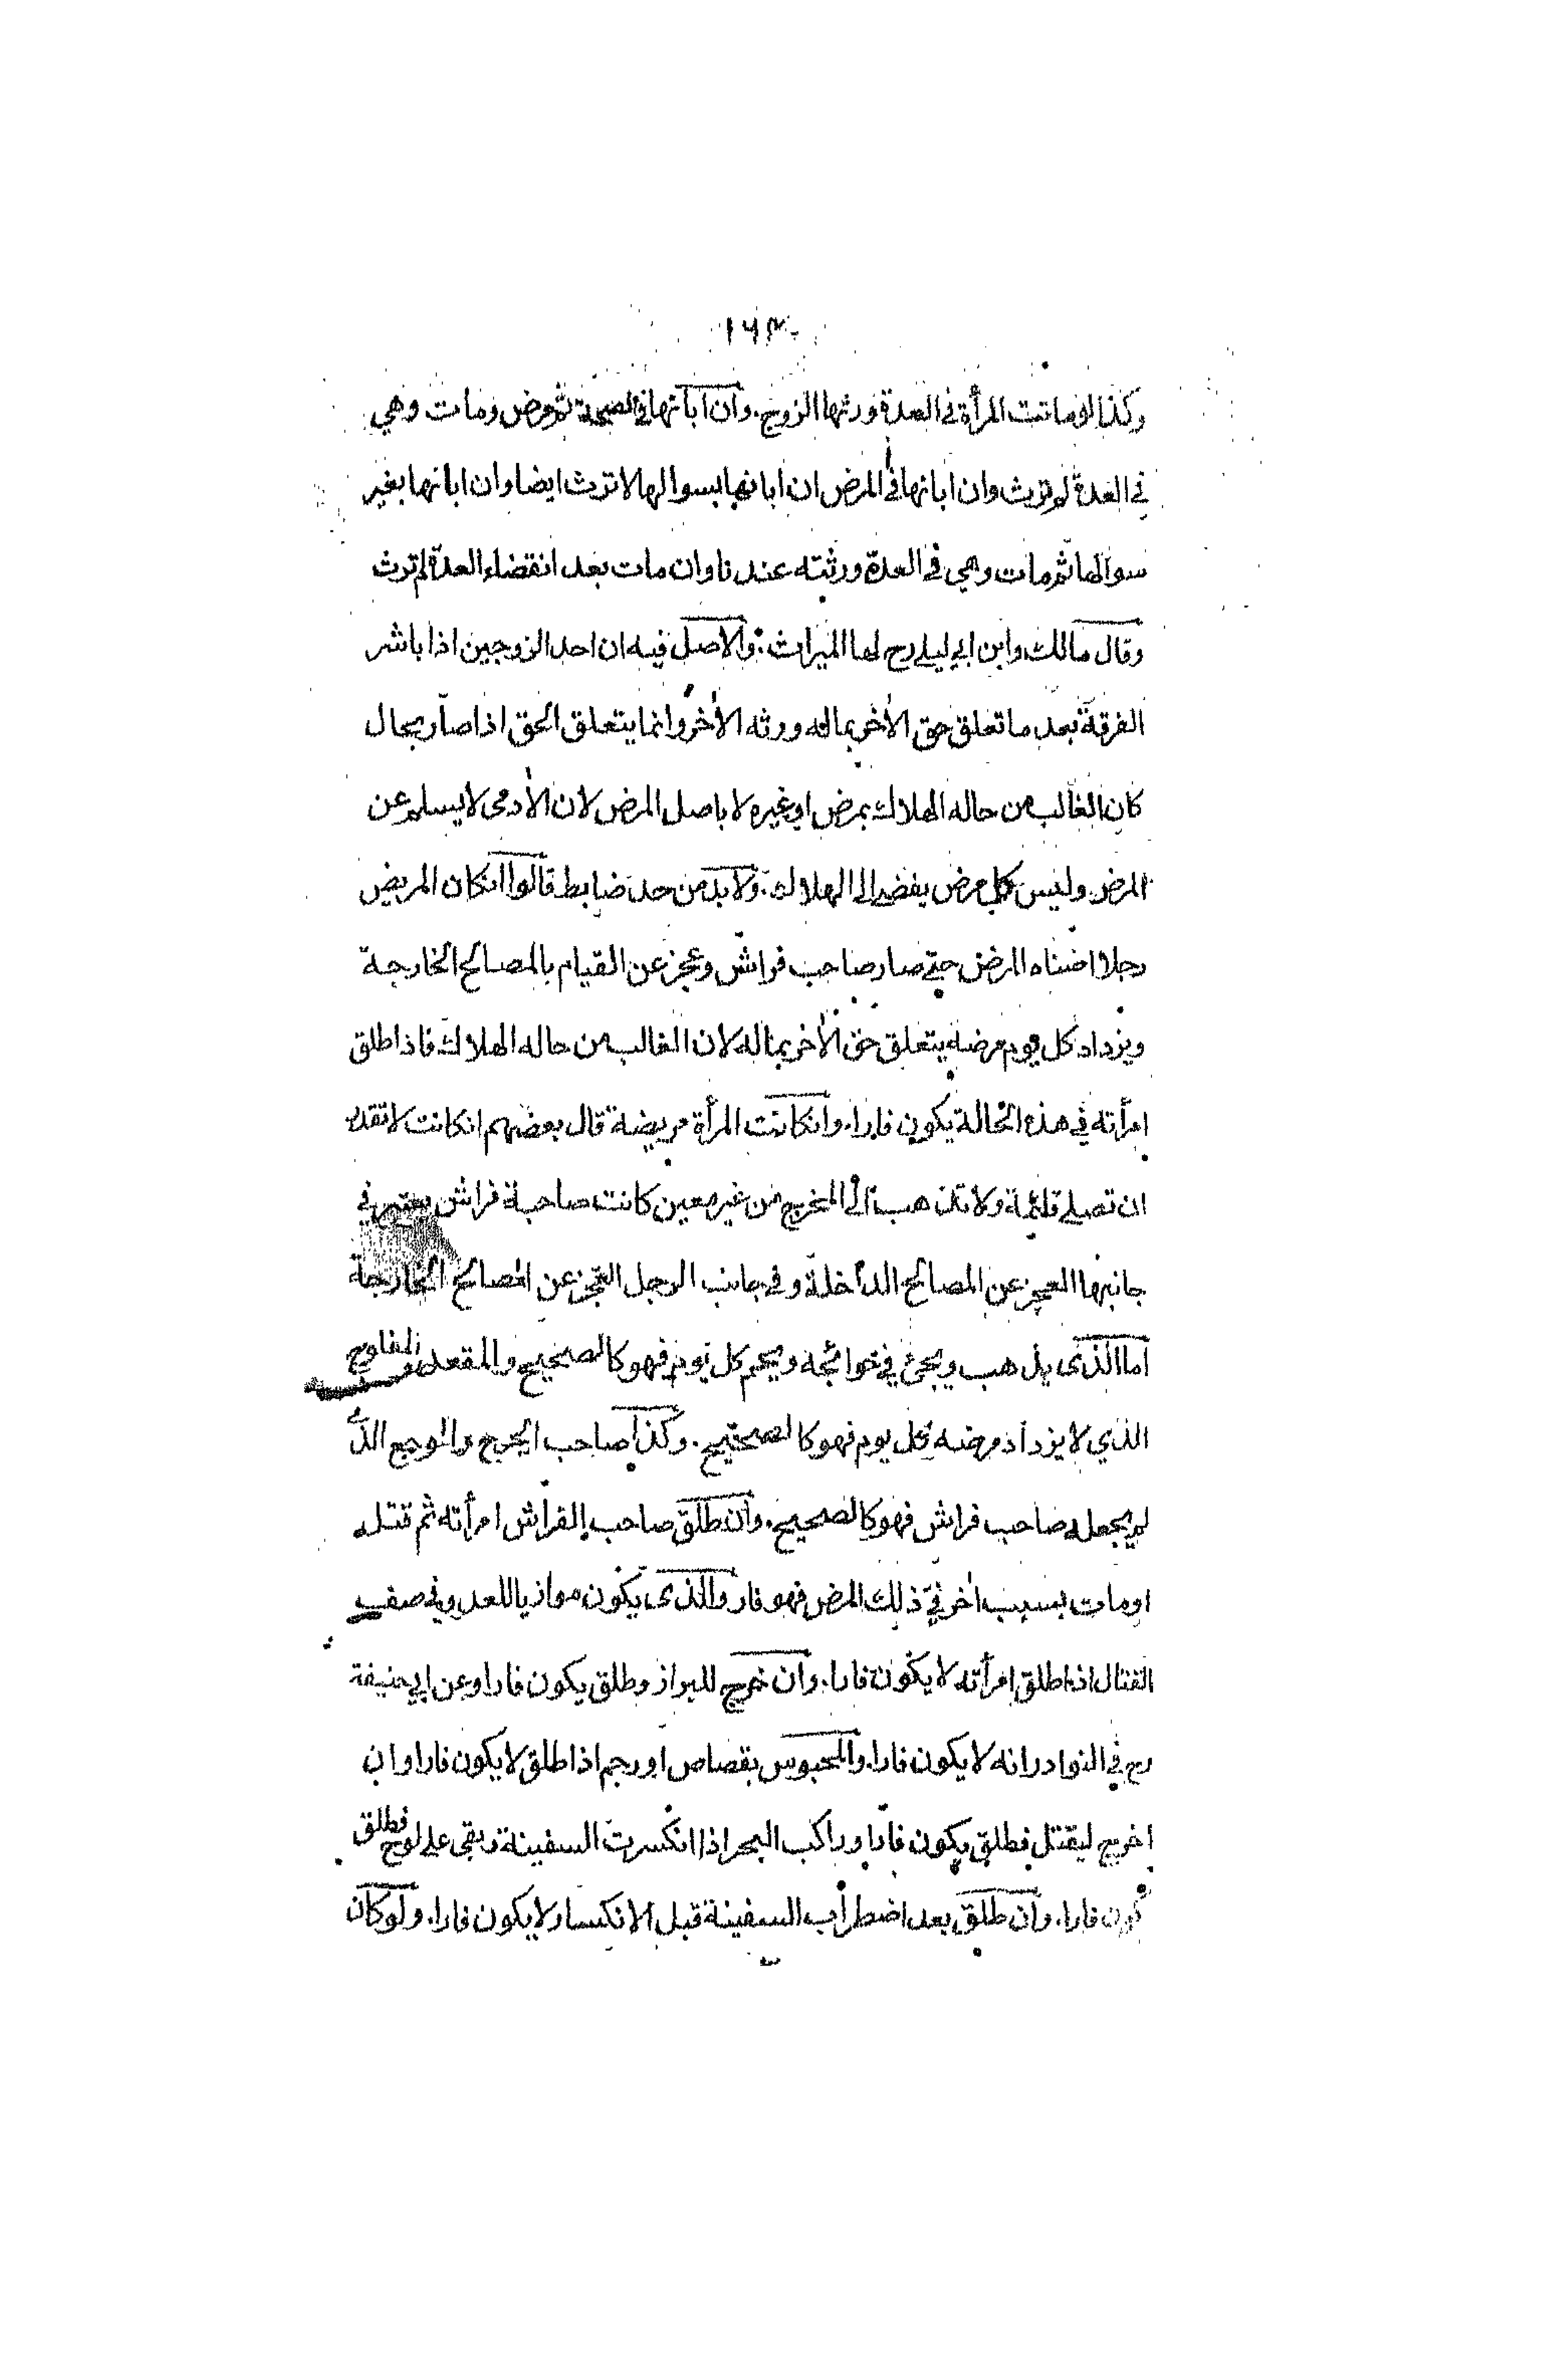 ۱۶۳
وكذا لو ماتت المرأة في العدة ورثها الزوج. وان ابانها في الصحة ثم مرض ومات وهي
في العدة لم ترث وان ابانها في المرض ان ابانها بسوالها لا ترث ايضا وان ابانها بغير
سوالها ثم مات وهي في العدة ورثته عندنا وان مات بعد انقضاء العدة لم ترث
وقال مالك وابن ابي ليلى رح لها الميراث: والاصل فيه ان احد الزوجين اذا باشر
الفرقة بعد ما تعلق حق الأخر بماله ورثه الأخر وانما يتعلق الحق اذا صار بحال
كان الغالب من حاله الهلاك بمرض او غيره لا باصل المرض لان الأدمى لا يسلم عن
المرض وليس كل مرض يفضى الى الهلاك. ولا بد من حد ضابط قالوا انكان المريض
رجلا اضناه المرض حتى صار صاحب فراش وعجز عن القيام بالمصالح الخارجة
ويزداد كل يوم مرضه يتعلق حق الأخر بماله لان الغالب من حاله الهلاك فاذا طلق
امرأته في هذه الحالة يكون فارا. وانكانت المرأة مريضة قال بعضهم انكانت لا تقدر
ان تصلى قائمة ولا تذهب الى المخرج من غير معين كانت صاحبة فراش يعتبر في
جانبها العجز عن المصالح الداخلة وفي جانب الرجل العجز عن المصالح الخارجة
اما الذى يذهب ويجئ في حوائجه ويحم كل يوم فهو كالصحيح والمقعد والمفلوج
الذي لا يزداد مرضه كل يوم فهو كالصحيح. وكذا صاحب الجرح والوجع الذى
لم يجعله صاحب فراش فهو كالصحيح. وان طلق صاحب الفراش امرأته ثم قتل
او مات بسبب أخر في ذلك المرض فهو فار والذى يكون موازيا للعدو في صف
القتال اذا طلق امرأته لا يكون فارا. وان خرج للبراز وطلق يكون فارا وعن ابي حنيفة
رح في النوادر انه لا يكون فارا. والمحبوس بقصاص او رجم اذا طلق لا يكون فارا وان
اخرج ليقتل فطلق يكون فارا وراكب البحر اذا انكسرت السفينة وبقى على لوح فطلق
يكون فارا. وان طلق بعد اضطراب السفينة قبل الانكسار لا يكون فارا. ولو كان